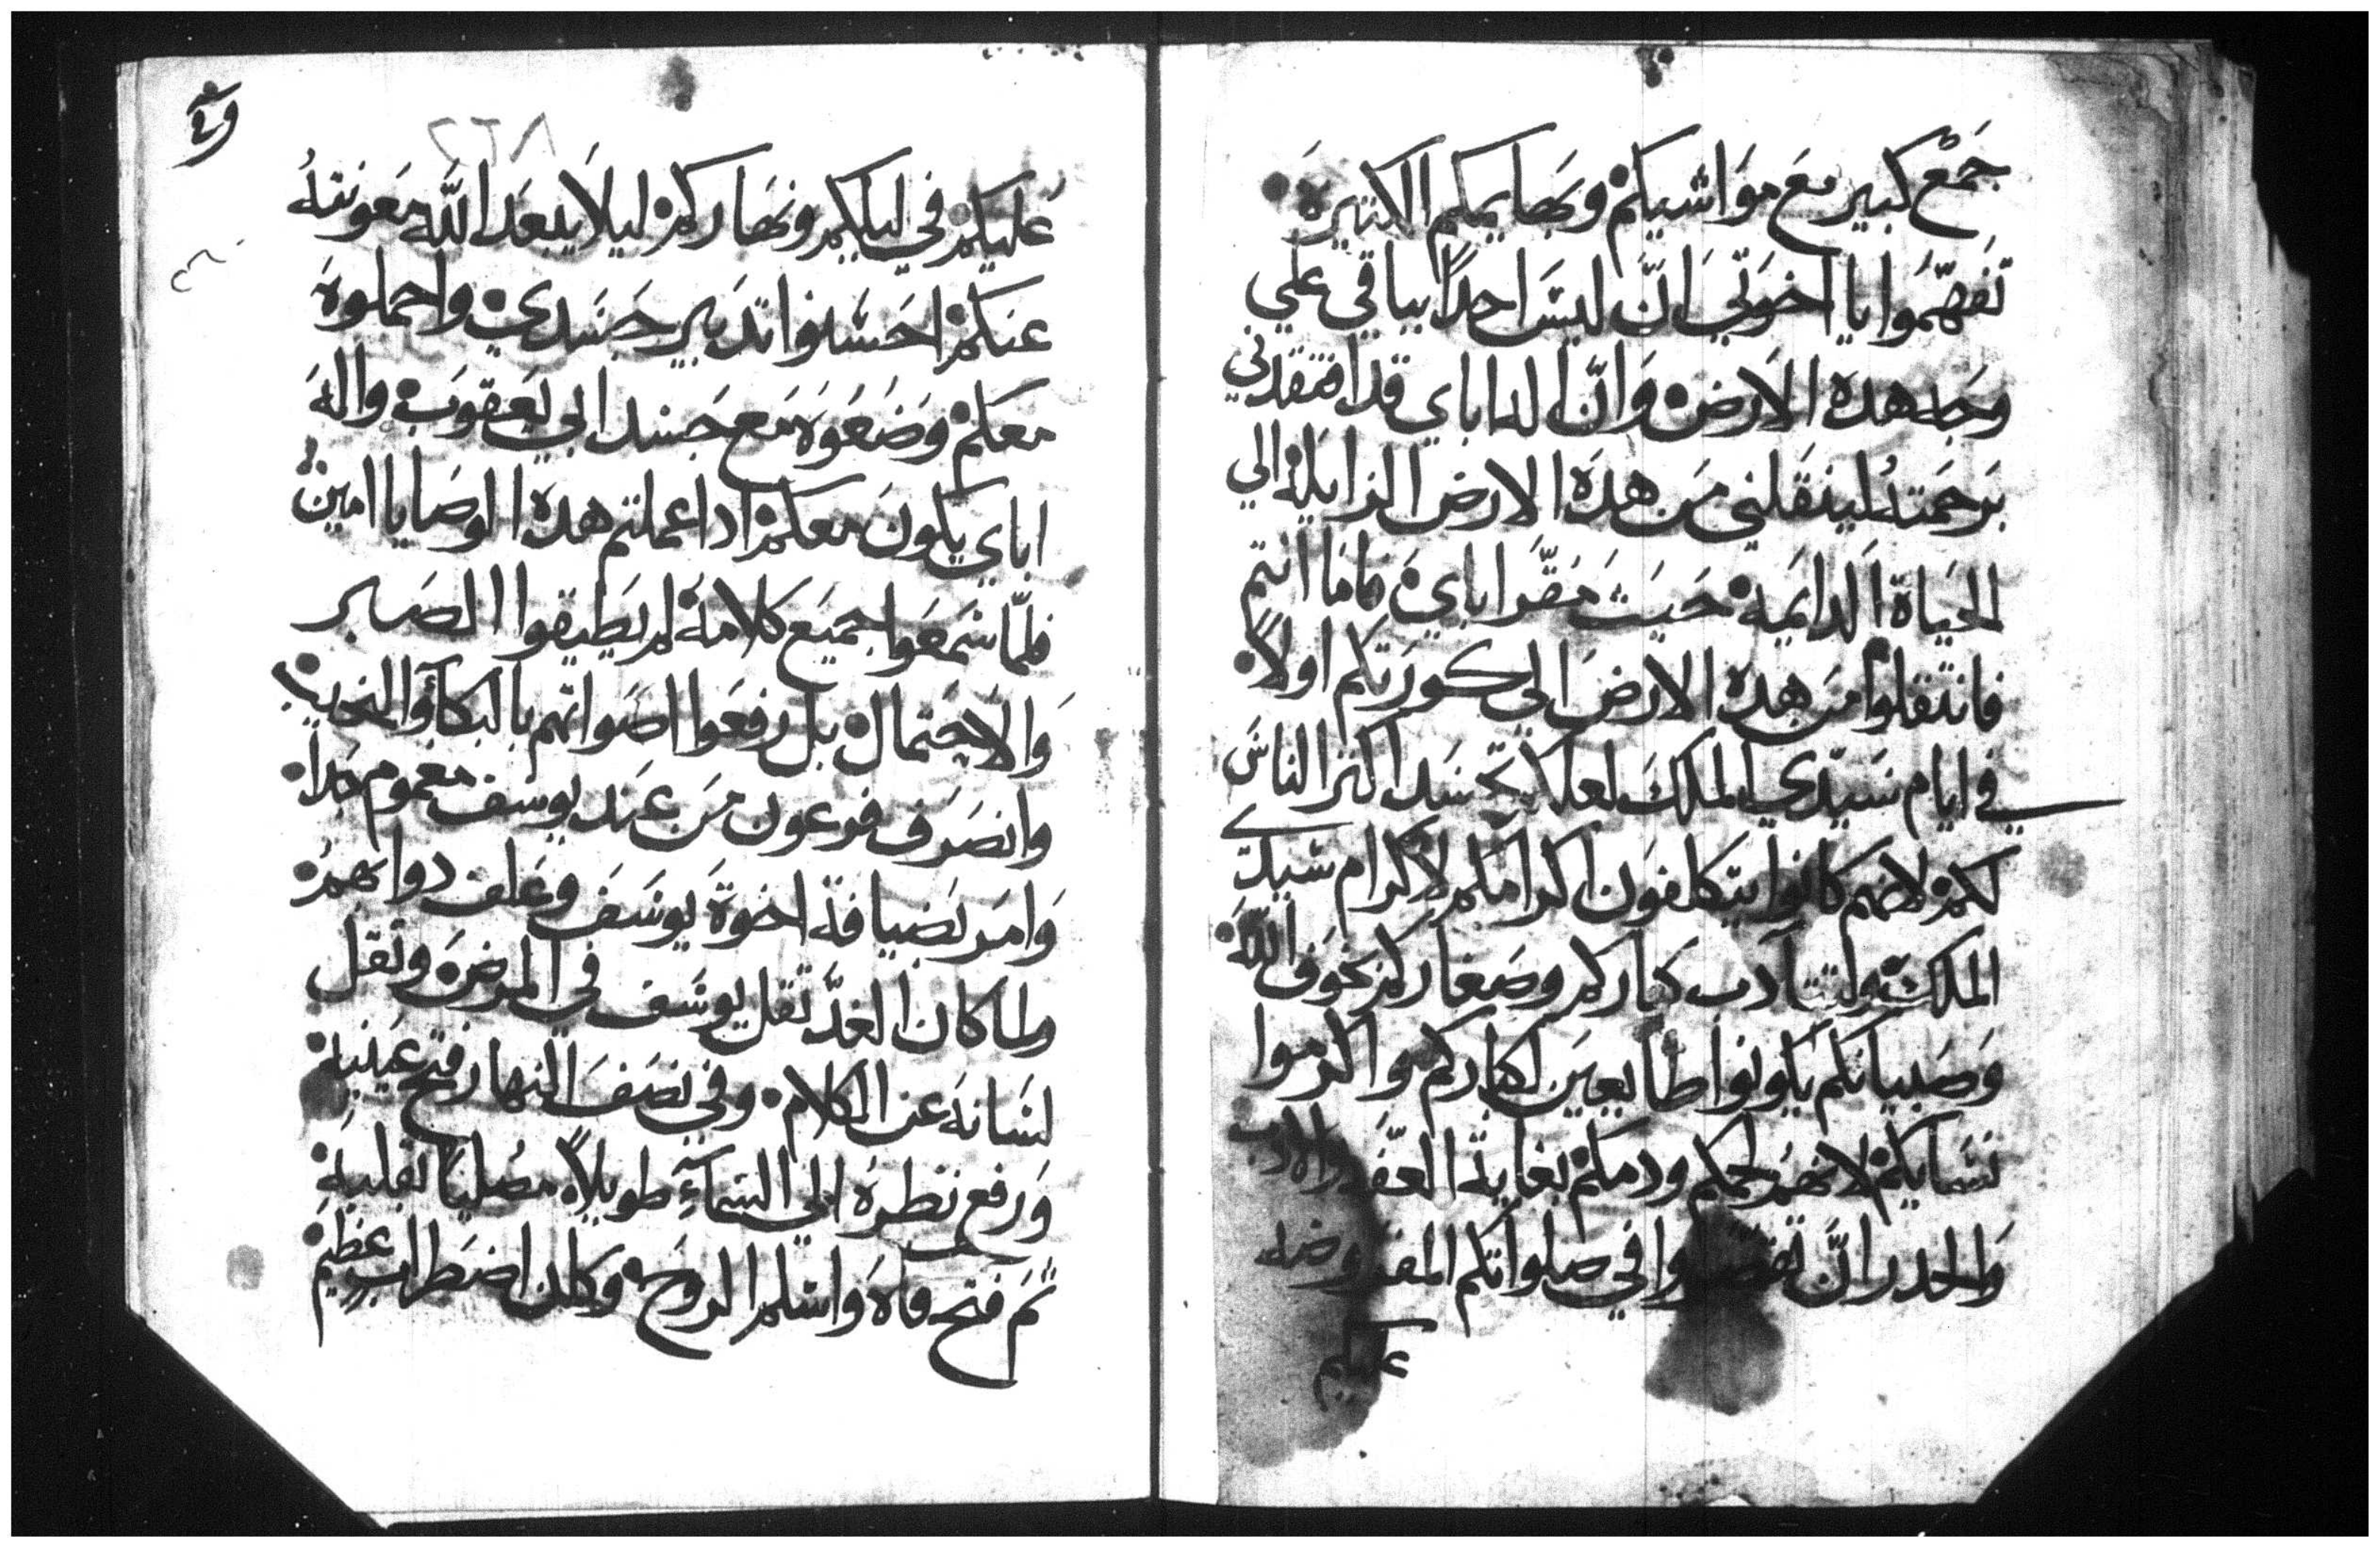 جَمْع كبير مع مَوَاشيكم وبهايمكم الكتيره
تفهّمُوا يا اخوَتي انّ ليسَ احداً بباقي علي
وجه هده الارض وَانّ اله اباي قد افتقدني
برحمَتهُ لينقلني مَن هدَه الارض الزايله الي
الحيَاة الدايَمه حَيَث مَقرّ اباي فامَا انتم
فانتقلوا مَن هده الارض الي كورَتكم اولاً
في ايام سَيّدي الملك لعلا تحسَد اكتر الناسَ
لكم لانهم كانوا يتكلفون اكرامكم لاكرام سيدي
الملك ولتتادب كباركم وصَغاركم بخوَف اللَّه
وَصَبيانكم يكونوا طايعين لكباركم واكرموا
نسَايكم لانهم لحمكم ودمكم بغاية العفّه والادب
وَالحدر انّ في صلواتكم المفروضه
عليكم
٢٦٨
عليكم في ليلكم ونهاركم ليلا يبعَد اللَّه مَعونتهُ
عنكم احسَنوا تدبير جَسَدي واحملوهَ
معكم وضَعَوَه مَع جَسد ابي يَعقوبَ واله
اباي يكون معكم ادا عملتم هده الوصَايا امين
فلمّا سَمَعَوا جميَع كلامَه لم يَطيقوا الصَبر
وَالاحتمال بل رفعَوا اصَواتهم بالبكآ والنحيب
وانصَرَف فرعون مَن عَند يوسَف مغموم جَداً
وَامَر بَضيافة اخوةَ يوسَفَ وعَلف دوابهم
ولما كان الغدّ تقل يوسَف في المرض وتقل
لسَانهَ عن الكلام وفي نصَف النهار فتح عَينيه
وَرفع نظرهُ الي السَمآءِ طويلاً مصَليا بقلبه
ثمَ فتح فاهَ وَاسلم الروح وكان اضَطراب عظيم